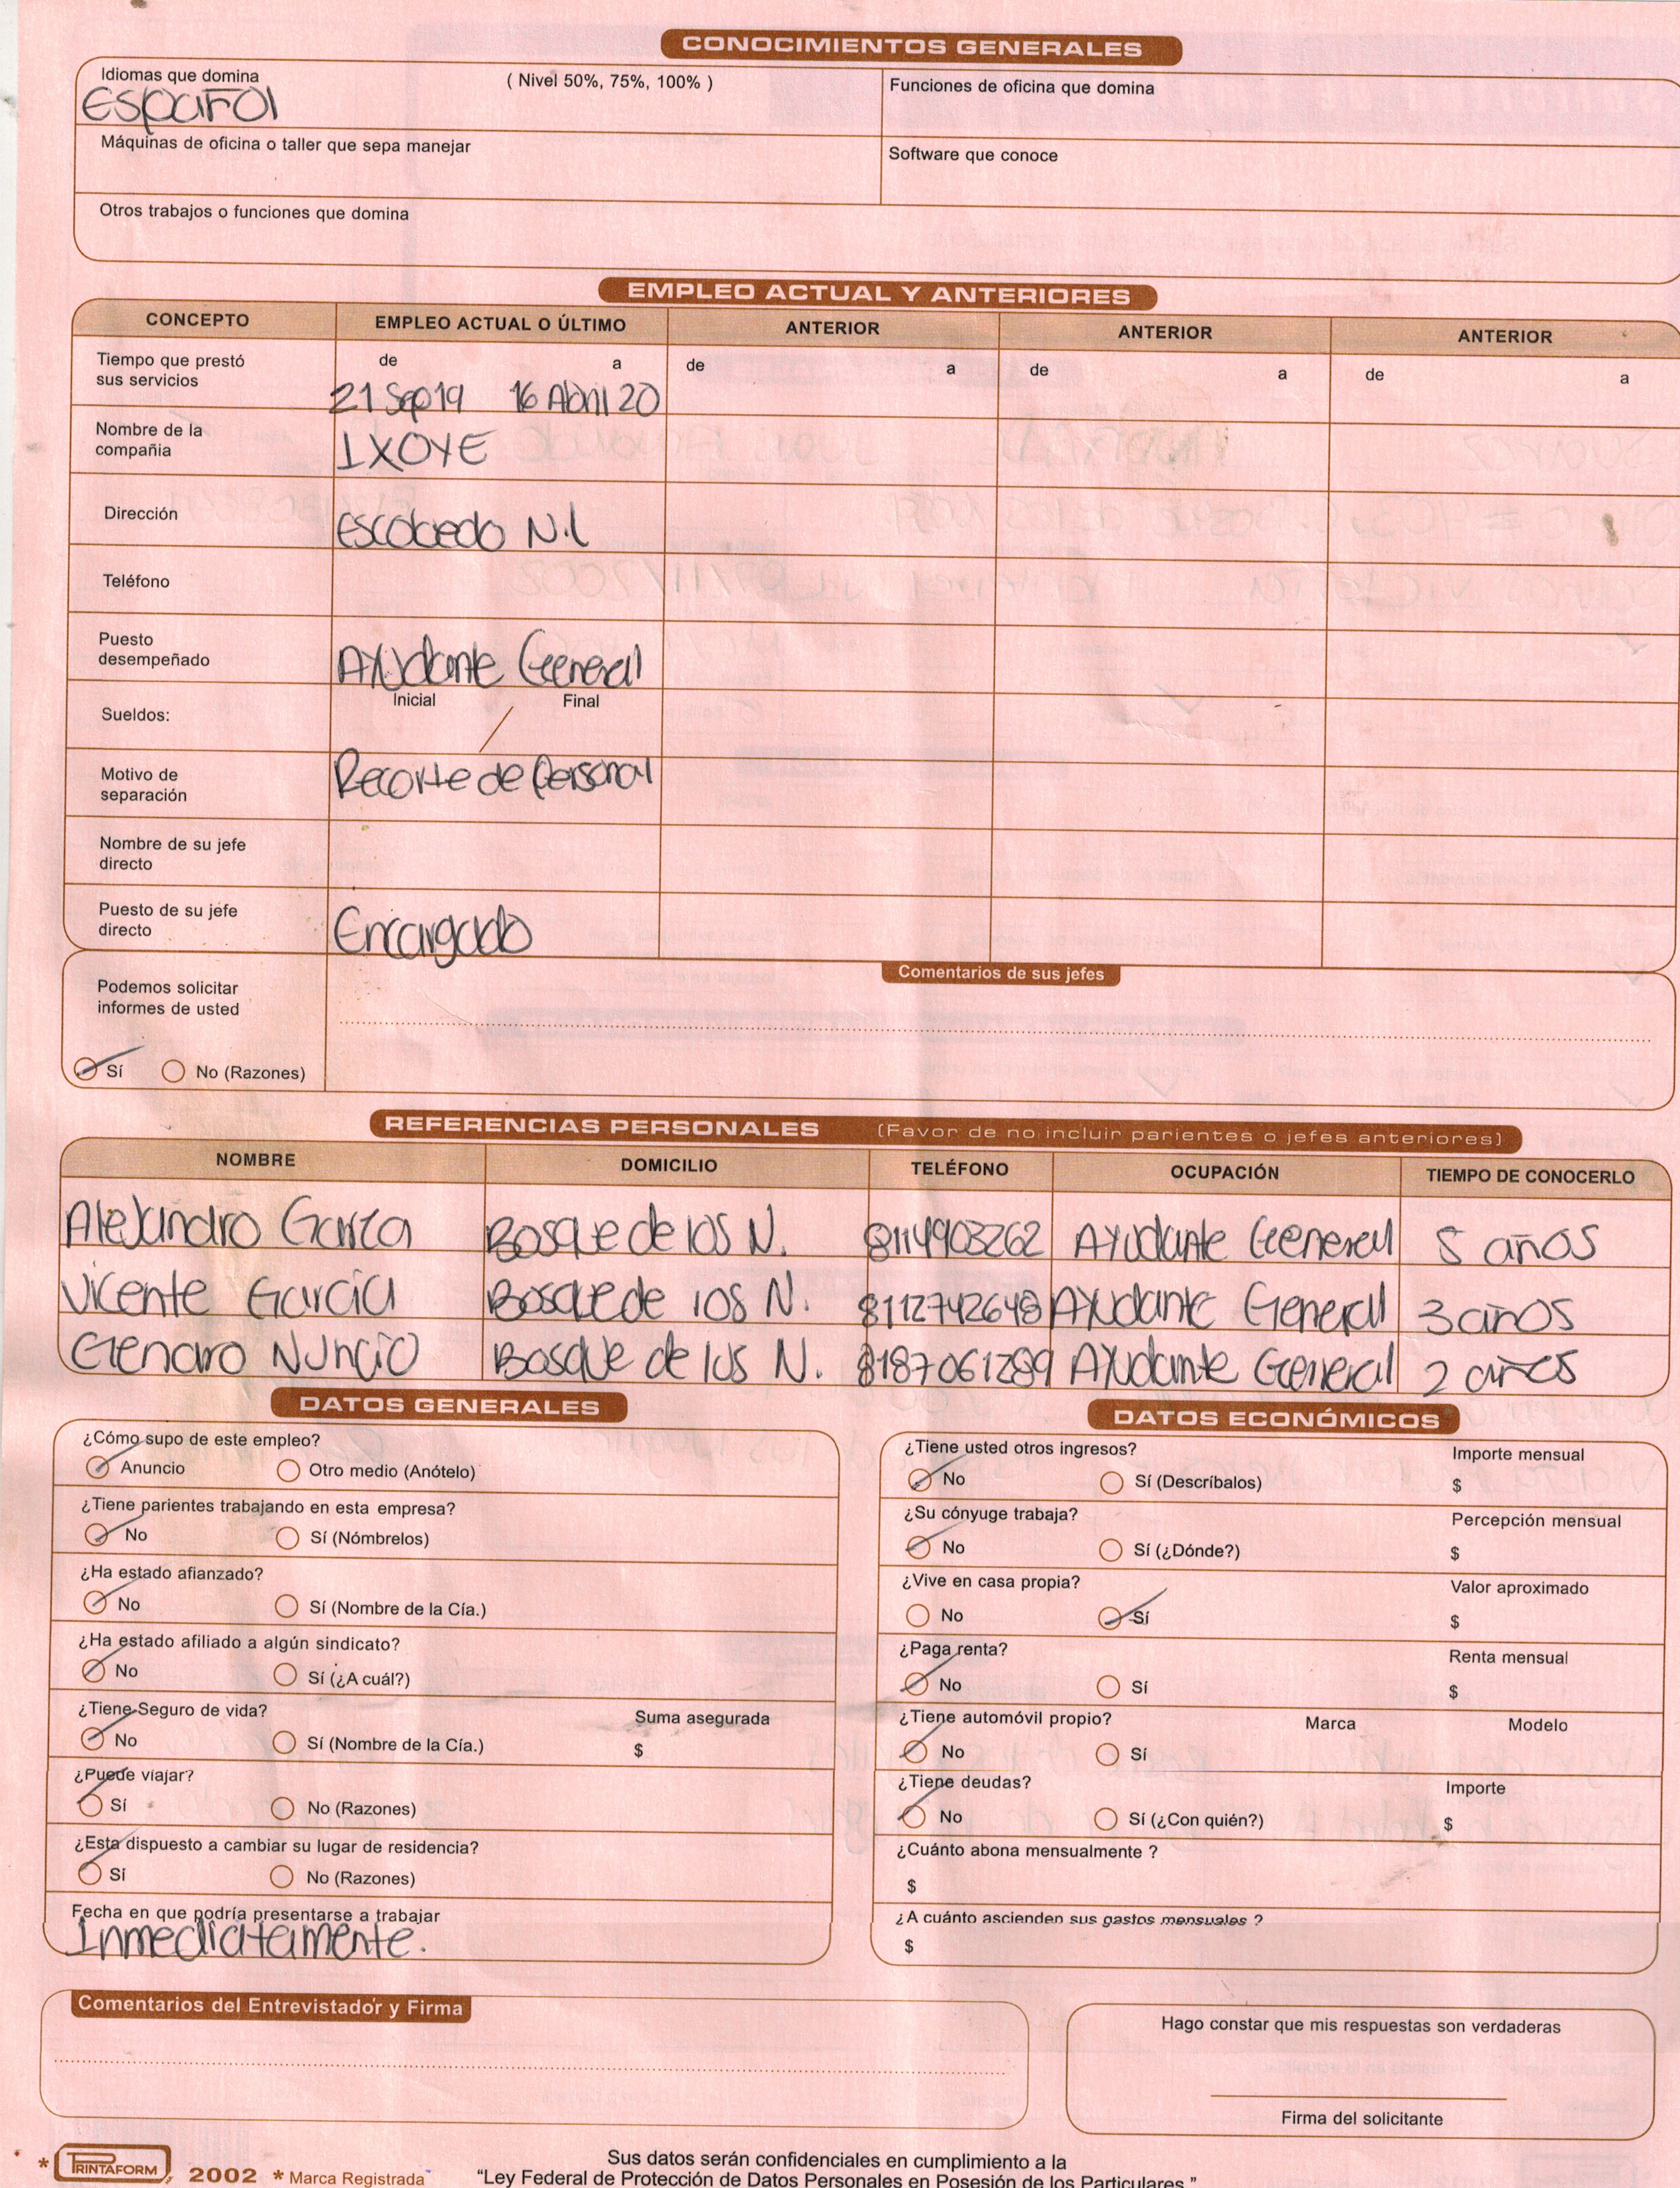 CONOCIMIENTOS GENERALES
Idiomas que domina ( Nivel 50%, 75%, 100% ) Funciones de oficina que domina
Español
Máquinas de oficina o taller que sepa manejar Software que conoce
Otros trabajos o funciones que domina
EMPLEO ACTUAL Y ANTERIORES
CONCEPTO EMPLEO ACTUAL O ÚLTIMO ANTERIOR ANTERIOR ANTERIOR
Tiempo que prestó de a de a de a de a
sus servicios 21 Sep 19 16 Abril 20
Nombre de la
compañia IXOYE
Dirección Escobedo N.L
Teléfono
Puesto
desempeñado Ayudante General
Sueldos: Inicial Final
Motivo de Recorte de Personal
separación
Nombre de su jefe
directo
Puesto de su jefe
directo Encargado
Comentarios de sus jefes
Podemos solicitar
informes de usted
Sí No (Razones)
REFERENCIAS PERSONALES (Favor de no incluir parientes o jefes anteriores)
NOMBRE DOMICILIO TELÉFONO OCUPACIÓN TIEMPO DE CONOCERLO
Alejandro Garza Bosque de los N. 8114903262 Ayudante General 5 años
Vicente Garcia Bosque de los N. 8112742648 Ayudante General 3 años
Genaro Nuncio Bosque de los N. 8187061289 Ayudante General 2 años
DATOS GENERALES
¿Cómo supo de este empleo?
Anuncio Otro medio (Anótelo)
¿Tiene parientes trabajando en esta empresa?
No Sí (Nómbrelos)
¿Ha estado afianzado?
No Sí (Nombre de la Cía.)
¿Ha estado afiliado a algún sindicato?
No Sí (¿A cuál?)
¿Tiene Seguro de vida? Suma asegurada
No Sí (Nombre de la Cía.) $
¿Puede viajar?
Sí No (Razones)
¿Esta dispuesto a cambiar su lugar de residencia?
Sí No (Razones)
Fecha en que podría presentarse a trabajar
Inmediatamente.
DATOS ECONÓMICOS
¿Tiene usted otros ingresos? Importe mensual
No Sí (Descríbalos) $
¿Su cónyuge trabaja? Percepción mensual
No Sí (¿Dónde?) $
¿Vive en casa propia? Valor aproximado
No Sí $
¿Paga renta? Renta mensual
No Sí $
¿Tiene automóvil propio? Marca Modelo
No Sí
¿Tiene deudas? Importe
No Sí (¿Con quién?) $
¿Cuánto abona mensualmente ?
$
¿A cuánto ascienden sus gastos mensuales ?
$
Comentarios del Entrevistador y Firma
Hago constar que mis respuestas son verdaderas
Firma del solicitante
* PRINTAFORM 2002 * Marca Registrada
Sus datos serán confidenciales en cumplimiento a la
“Ley Federal de Protección de Datos Personales en Posesión de los Particulares.”